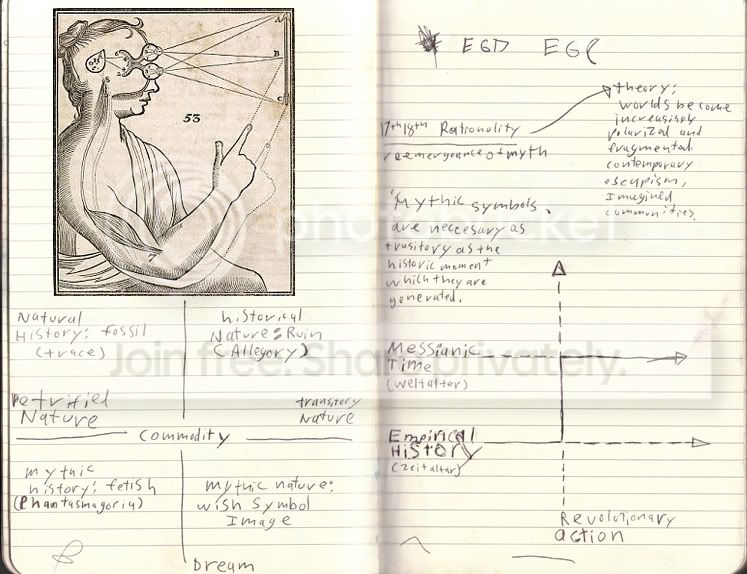 A
B
C
53
7
Natural
History: fossil
(trace)
historical
Nature: Ruin
(Allegory)
Petrified
Nature
transitory
Nature
Commodity
mythic
history: fetish
(Phantasmagoria)
mythic nature:
wish symbol
Image
Dream
EGD EGC
17th 18th Rationality
reemergence of myth
theory:
worlds become
increasingly
polarized and
fragmented
contemporary
escapism,
Imagined
communities.
Mythic symbols,
are neccesary as
trasitory as the
historic moment
which they are
generated.
Messianic
Time
(weltalter)
Empirical
History
(zeitalter)
Revolutionary
action
photobucket
Join free. Share privately.